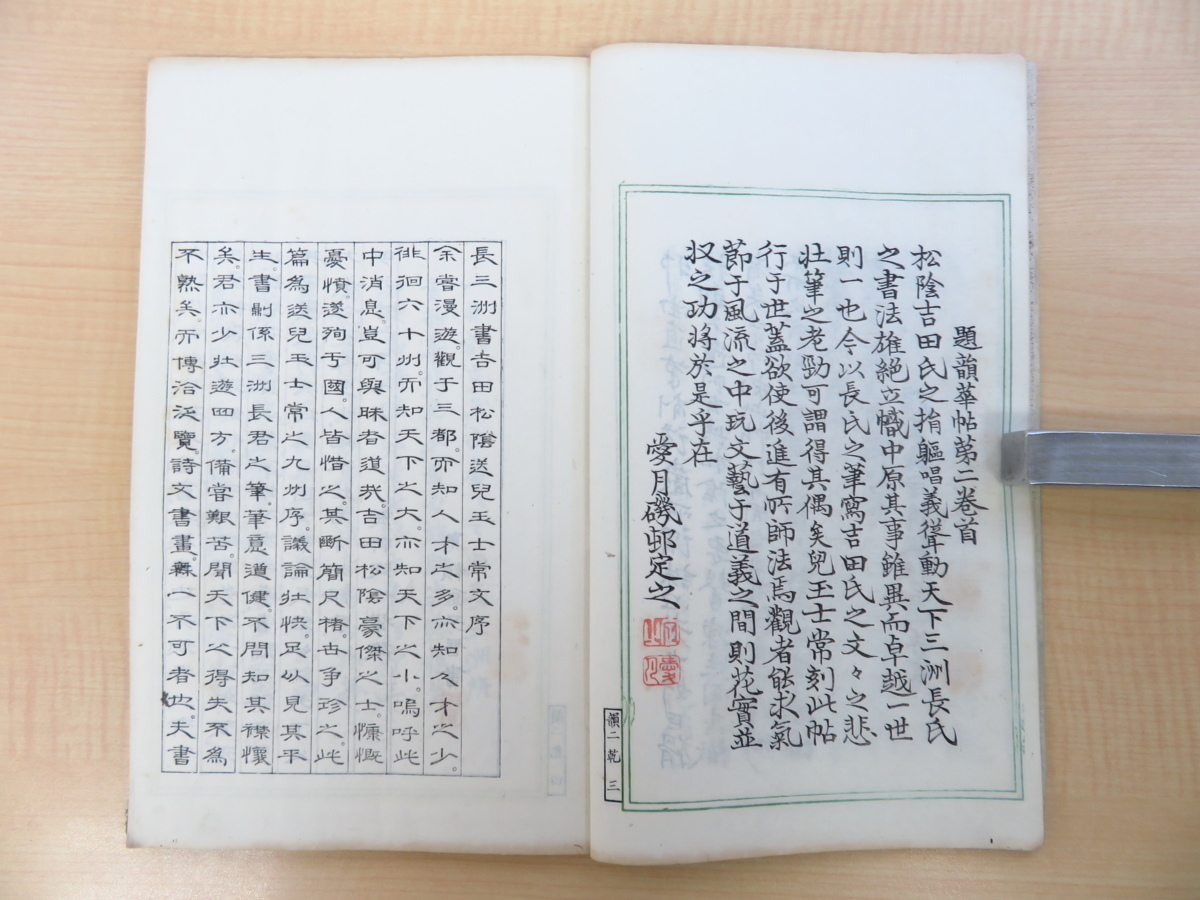 題韻華帖第二卷首
松陰吉田氏之捐軀唱義聳動天下三洲長氏
之書法雄絶立幟中原其事雖異而卓越一世
則一也今以長氏之筆寫吉田氏之文々之悲
壮筆之老勁可謂得其偶矣兒玉士常刻此帖
行于世蓋欲使後進有所師法焉觀者能求氣
節于風流之中玩文藝于道義之間則花實並
収之功將於是乎在
愛月磯邨定之
韻二 乾 三
長三洲書吉田松陰送兒玉士常文序
余嘗漫遊。觀于三都。而知人才之多。亦知人才之少。
徘徊六十州。而知天下之大。亦知天下之小。嗚呼此
中消息。豈可與昧者道哉。吉田松陰豪傑之士。慷慨
憂憤。遂殉于國。人皆惜之。其斷簡尺楮。古争珍之。此
篇爲送兒玉士常之九州序。議論壮快。足以見其平
生。書則係三洲長君之筆。筆意遒健。不問知其襟懷
矣。君亦少壮遊四方。備嘗艱苦。聞天下之得失不爲
不熟矣。而博洽泛覽。詩文書畫。無一不可者也。夫書